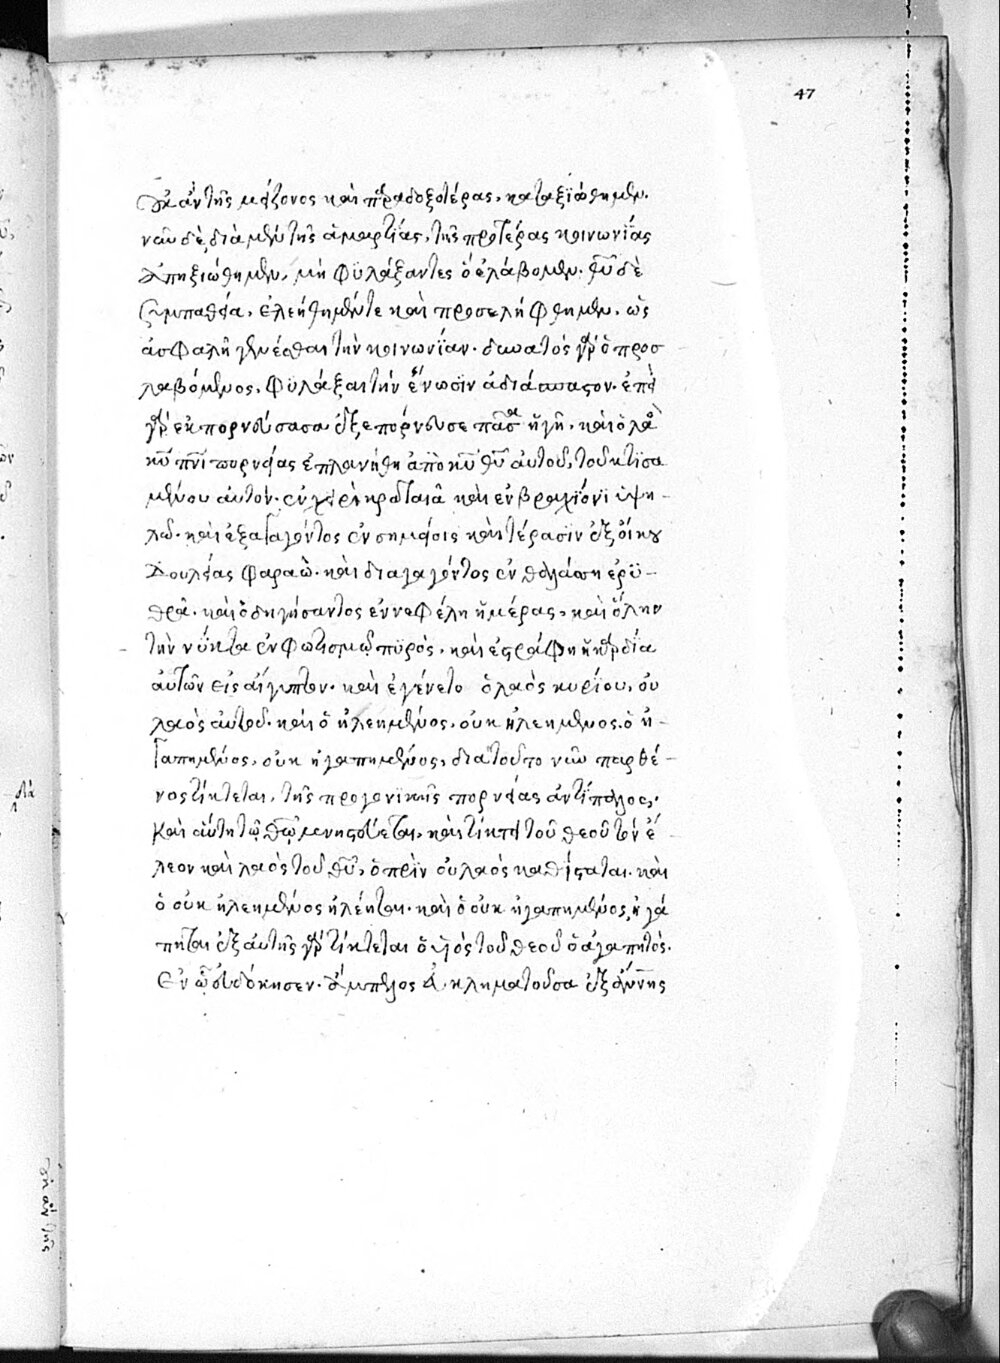 47
οὐκ ἂν τῆς μείζονος καὶ παραδοξοτέρας, κατηξιώθημεν.
νῦν δὲ, διὰ μὲν τῆς ἁμαρτίας, τῆς προτέρας κοινωνίας
ἀπηξιώθημεν, μὴ φϋλάξαντες ὃ ἐλάβομεν. θῦ δὲ
συμπαθεία, ἐλεήθημέντε καὶ προσελήφθημεν, ὡς
ἀσφαλῆ γενέσθαι τὴν κοινωνΐαν. δυνατὸς γὰρ ὁ προσ
λαβόμενος, φϋλάξαι τὴν ἕνωσϊν ἀδιάσπαστον. ἐπεὶ
γὰρ ἐκπορνεύσασα ἐξεπόρνευσε πᾶσα ἡ γῆ, καὶ ὁ λαὸς
κῦ πνι πορνείας ἐπλανήθη ἀπὸ κῦ θῦ αὐτοῦ, τοῦ κτϊσα
μένου αὐτὸν. ἐν χειρὶ κραταιᾶ καὶ ἐν βραχίονι ὑψη-
λῶ. καὶ ἐξαγαγόντος ἐν σημείοις καὶ τέρασϊν ἐξ οἴκου
δουλείας φαραὼ. καὶ διαγαγόντος ἐν θαλάσση ἐρϋ-
θρᾶ. καὶ ὁδηγήσαντος ἐν νεφέλη ἡμέρας, καὶ ὅλην
τὴν νύκτα ἐν φωτισμῶ πϋρός, καὶ ἐστράφη ἡ καρδία
αὐτῶν εἰς αἴγυπτον. καὶ ἐγένετο ὁ λαὸς κυρίου, οὐ
λαὸς αὐτοῦ. καὶ ὁ ἠλεημένος, οὐκ ἠλεημένος. ὁ ἠ-
γαπημένος, οὐκ ἠγαπημένος, διὰ τοῦτο νῦν παρθέ-
νος τίκτεται, τῆς προγονϊκῆς πορνείας ἀντίπαλος,
καὶ αὐτη τῶ θῶ μνηστεύεται, καὶ τίκτει τοῦ θεοῦ τὸν ἔ-
λεον καὶ λαὸς τοῦ θῦ, ὁ πρὶν οὐ λαὸς καθίσταται. καὶ
ὁ οὐκ ἠλεημένος ἠλέηται. καὶ ὁ οὐκ ἠγαπημένος, ἠγά
πηται ἐξ αὐτῆς γὰρ τίκτεται ὁ υἱὸς τοῦ θεοῦ ὁ ἀγαπητὸς.
Ἐν ᾧ εὐδόκησεν. ἄμπελος εὐκληματοῦσα ἐξ ἄννης